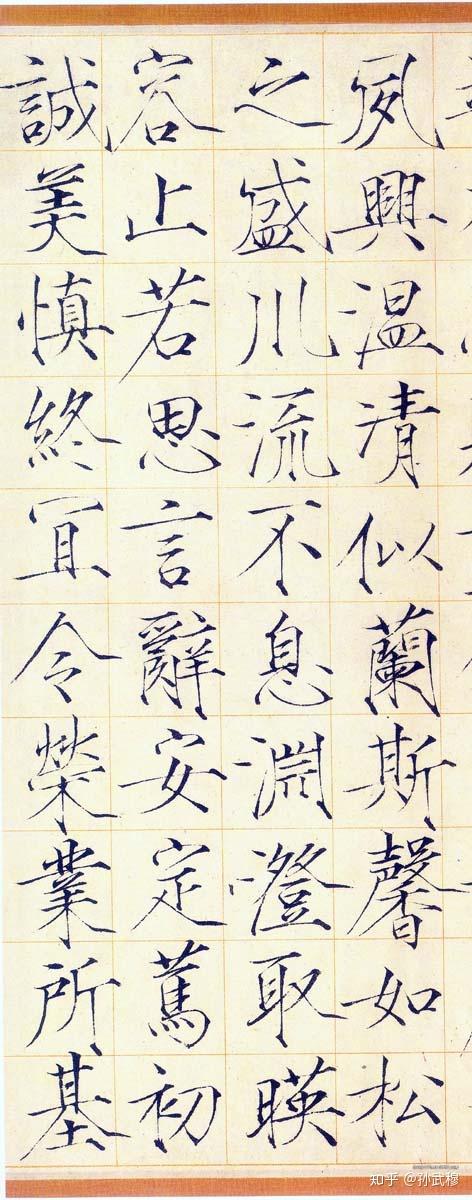 夙興温清似蘭斯馨如松
之盛川流不息淵澄取暎
容止若思言辭安定篤初
誠美慎終冝令榮業所基
知乎 @孙武穆